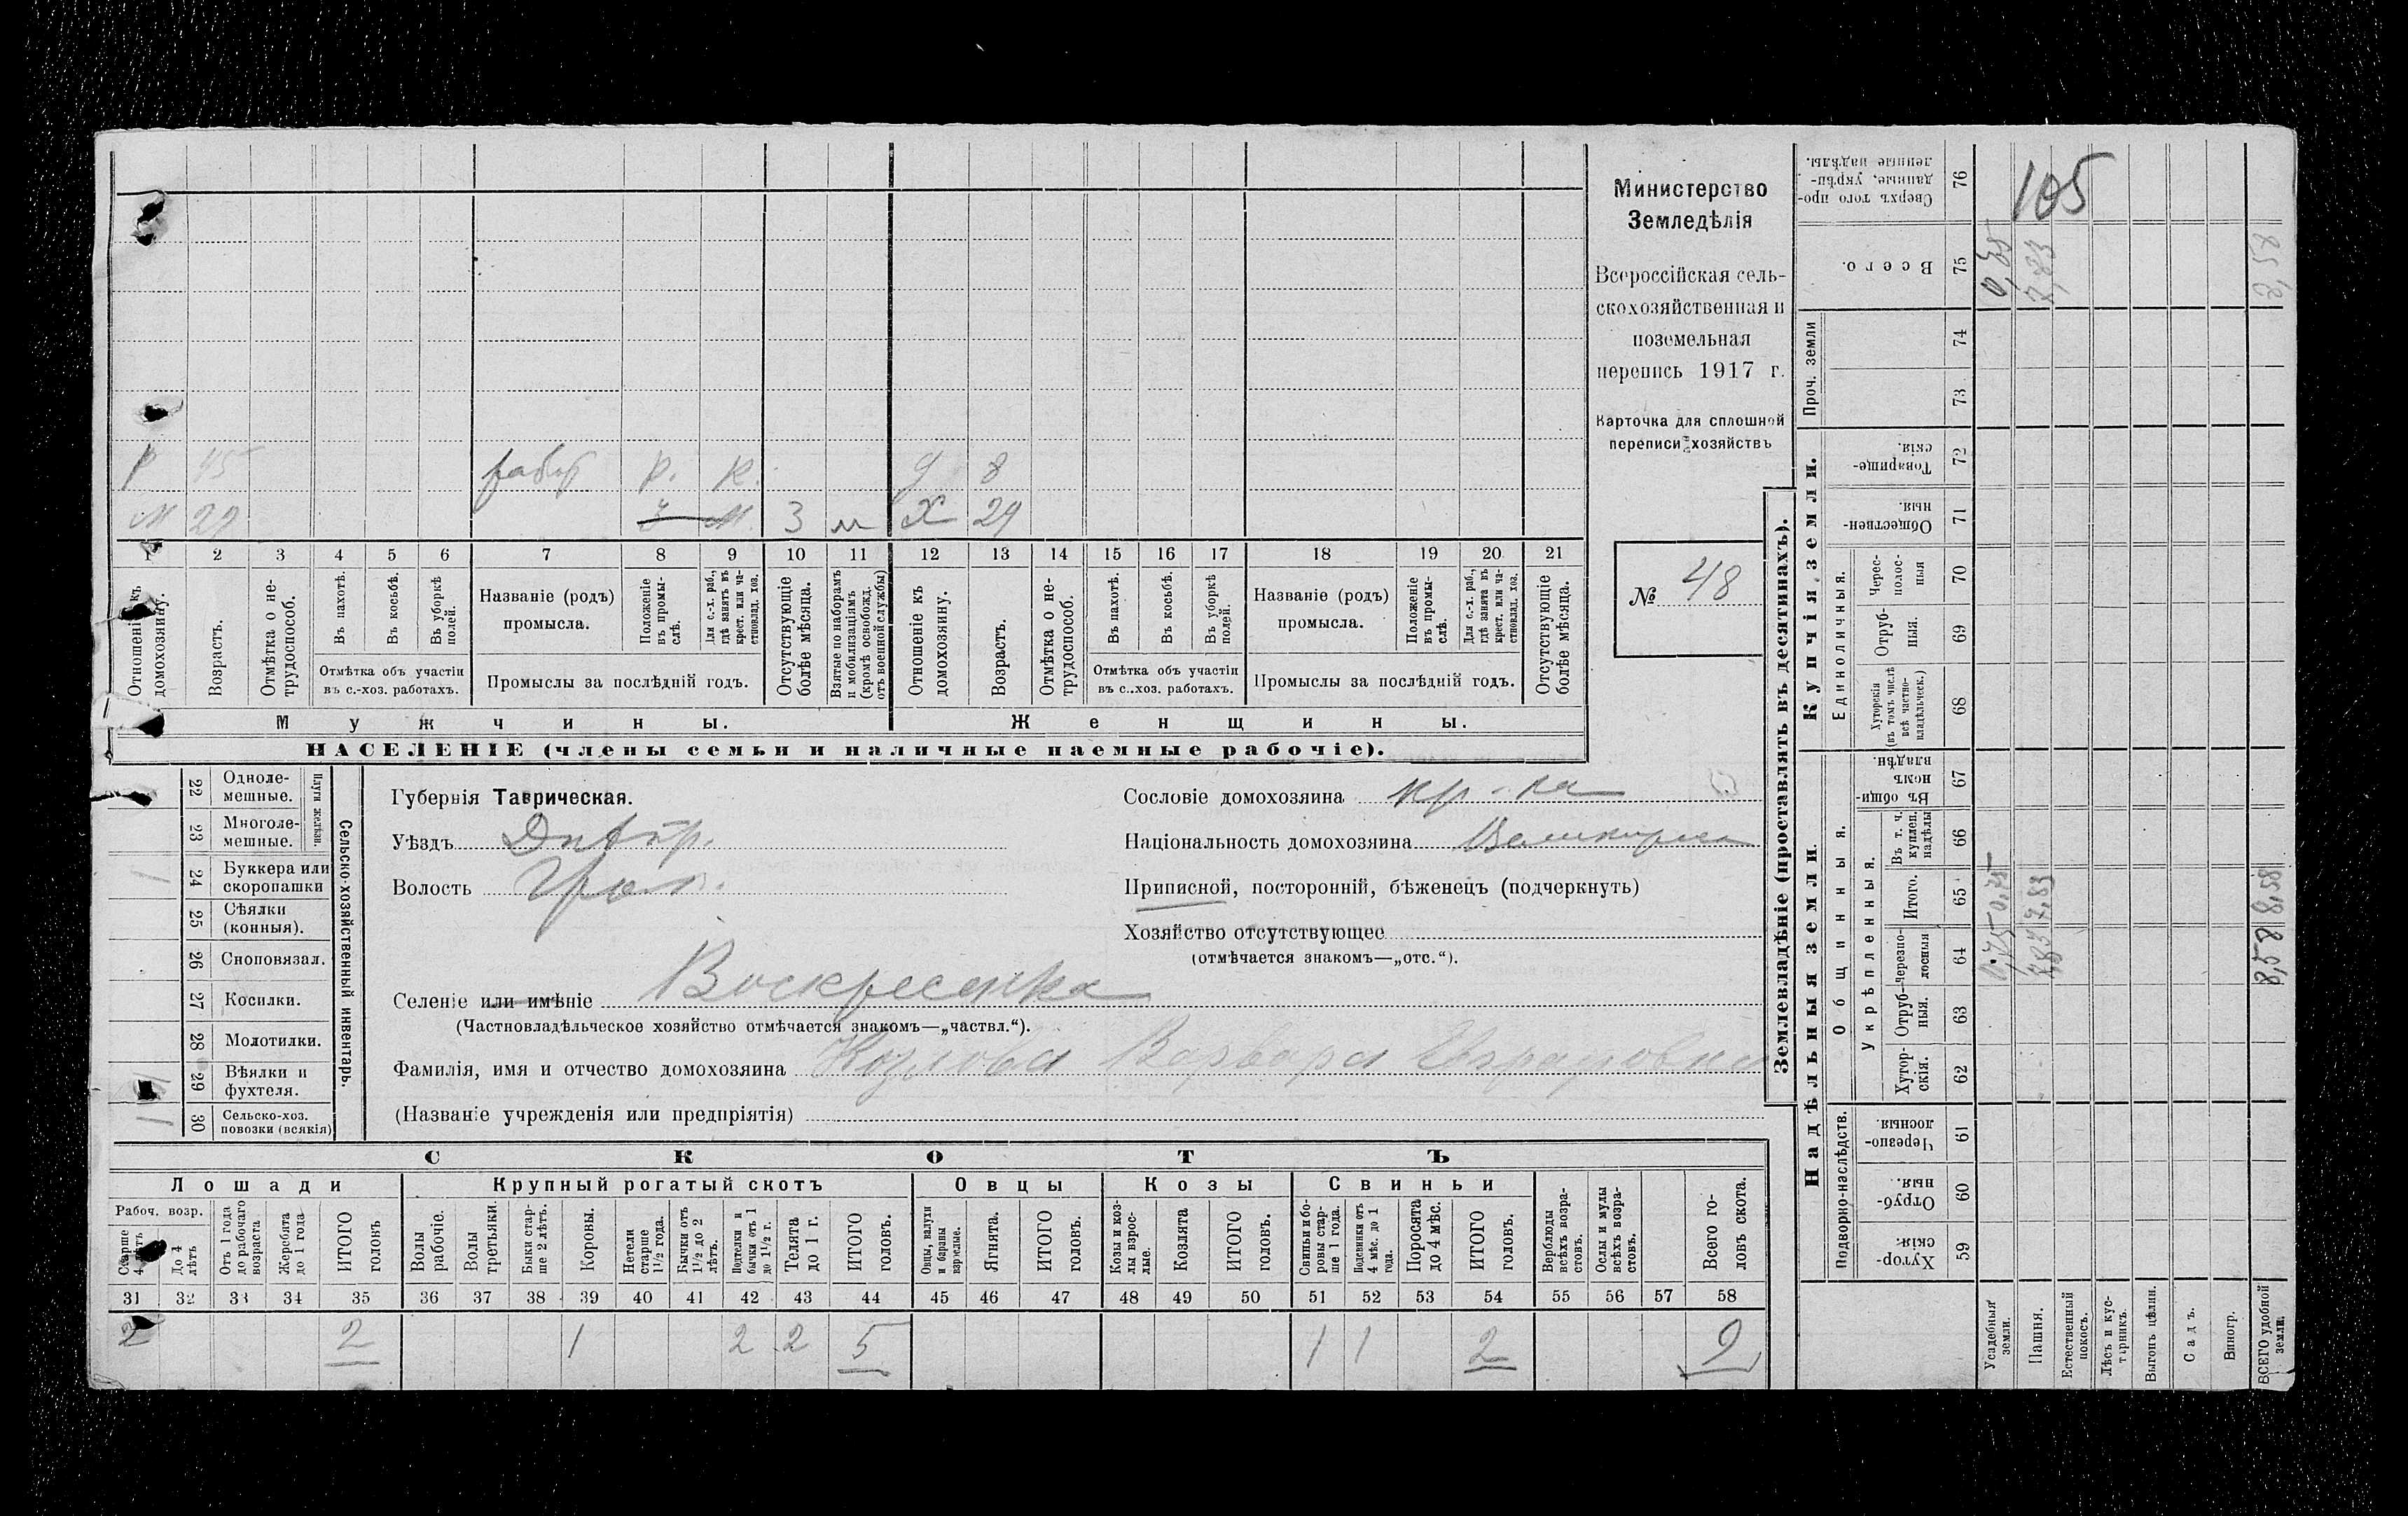 Министерство
Земледѣлія
Всероссійская сель-
скохозяйственная и
поземельная
перепись 1917 г.
Карточка для сплошной
переписи хозяйствъ
№ 48
Р 45 р. р. д 8
М 29 3 м 3 м Х 29
1 2 3 4 5 6 7 8 9 10 11 12 13 14 15 16 17 18 19 20 21
Отношеніе къ домохозяину.
Возрастъ.
Отмѣтка о не-трудоспособ.
Въ пахотѣ.
Въ косьбѣ.
Въ уборкѣ полей.
Отмѣтка объ участіи въ с.-хоз. работахъ.
Названіе (родъ) промысла.
Положеніе въ промы-слѣ.
Для с.-х. раб., гдѣ занятъ въ крест. или ча-стновлад. хоз.
Промыслы за послѣдній годъ.
Отсутствующіе болѣе мѣсяца.
Взятые по наборамъ и мобилизаціямъ (кромѣ освобожд. отъ военной службы)
Отношеніе къ домохозяину.
Возрастъ.
Отмѣтка о не-трудоспособ.
Въ пахотѣ.
Въ косьбѣ.
Въ уборкѣ полей.
Отмѣтка объ участіи въ с..хоз. работахъ.
Названіе (родъ) промысла.
Положеніе въ промы-слѣ.
Для с.-х. раб., гдѣ занята въ крест. или ча-стновлад. хоз.
Промыслы за послѣдній годъ.
Отсутствующіе болѣе мѣсяца.
Мужчины.
Женщины.
НАСЕЛЕНІЕ (члены семьи и наличные наемные рабочіе).
22 Одноле-мешные.
23 Многоле-мешные.
Плуги желѣзн.
24 Буккера или скоропашки 1
25 Сѣялки (конныя).
26 Сноповязал.
27 Косилки.
28 Молотилки.
29 Вѣялки и фухтеля.
30 Сельско-хоз. повозки (всякія) 1
Сельско-хозяйственный инвентарь.
Губернія Таврическая.
Уѣздъ Днѣпр.
Волость
Селеніе или имѣніе Воскресенка
(Частновладѣльческое хозяйство отмѣчается знакомъ—„частвл.“).
Фамилія, имя и отчество домохозяина Козлова Варвара
(Названіе учрежденія или предпріятія)
Сословіе домохозяина кр-ка
Національность домохозяина
Приписной, посторонній, бѣженецъ (подчеркнуть)
Хозяйство отсутствующее
(отмѣчается знакомъ—„отс.“).
СКОТЪ
Лошади Крупный рогатый скотъ Овцы Козы Свиньи
Рабоч. возр.
Старше 4 лѣтъ
До 4 лѣтъ
Отъ 1 года до рабочаго возраста
Жеребята до 1 года
ИТОГО головъ
Волы рабочіе.
Волы третьяки.
Быки стар-ше 2 лѣтъ.
Коровы.
Нетели старше 1½ года.
Бычки отъ 1½ до 2 лѣтъ.
Подтелки и бычки отъ 1 до 1½ г.
Телята до 1 г.
ИТОГО головъ.
Овцы, валухи и бараны взрослые.
Ягнята.
ИТОГО головъ.
Козы и коз-лы взрос-лые.
Козлята
ИТОГО головъ.
Свиньи и бо-ровы стар-ше 1 года.
Подсвинки отъ 4 мѣс. до 1 года.
Поросята до 4 мѣс.
ИТОГО головъ.
Верблюды всѣхъ возра-стовъ.
Ослы и мулы всѣхъ возра-стовъ.
Всего го-ловъ скота.
31 32 33 34 35 36 37 38 39 40 41 42 43 44 45 46 47 48 49 50 51 52 53 54 55 56 57 58
2 2 1 2 2 5 1 1 2 9
Землевладѣніе (проставлять въ десятинахъ).
Надѣльныя земли.
Купчія земли.
Проч. земли
Подворно-наслѣдств.
Общинныя.
Укрѣпленныя.
Единоличныя.
Хутор-скія. 59
Отруб-ныя. 60
Черезпо-лосныя. 61
Хутор-скія. 62
Отруб-ныя. 63
Черезпо-лосныя 64
Итого. 65
Въ т. ч. куплен. надѣлы 66
Въ общи-номъ владѣн. 67
Хуторскія (въ томъ числѣ всѣ частно-владѣльческ.) 68
Отруб-ныя. 69
Черес-полос-ныя 70
Обществен-ныя. 71
Товарище-скія. 72
73
74
Всего. 75
Сверхъ того про-данные, укрѣп-ленные надѣлы. 76
105
Усадебныя земли. 0,75 0,75 0,75
Пашня. 7,83 7,83 7,83
Естественный покосъ.
Лѣсъ и кус-тарникъ.
Выгонъ цѣлин.
Садъ.
Виногр.
ВСЕГО удобной земли. 8,58 8,58 8,58